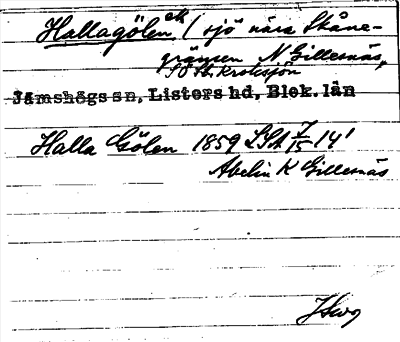 Hallagölen etc / sjö nära Skåne-
gränsen N Gillesnäs,
SO th. Krokesjön
Jämshögs sn, Listers hd, Blek. län
Halla Gölen 1859 LSA 7/15 14'
Abelin K Gillesnäs